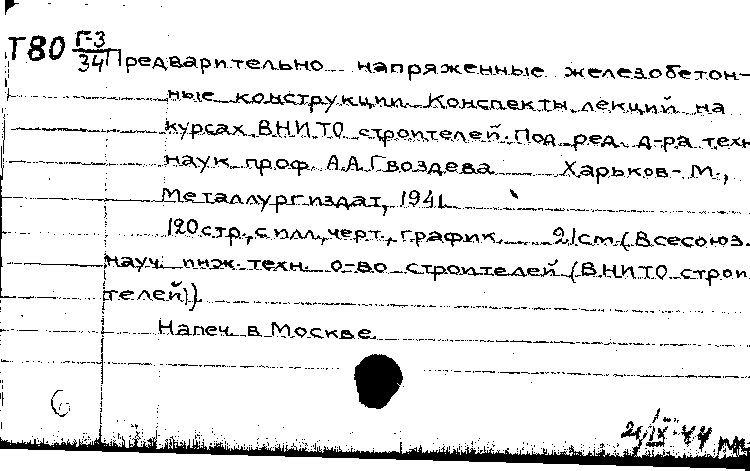 Т80 Г-3
34
Предварительно напряженные железобетон-
ные конструкции. Конспекты лекций на
курсах ВНИТО строителей. Под ред. д-ра техн
наук проф. А.А.Гвоздева Харьков-М.,
Металлургиздат, 1941.
120 стр., с илл., черт., график. 21cm (Всесоюз.
науч. инж.техн. о-во строителей (ВНИТО строи
телей)).
Напеч. в Москве.
6